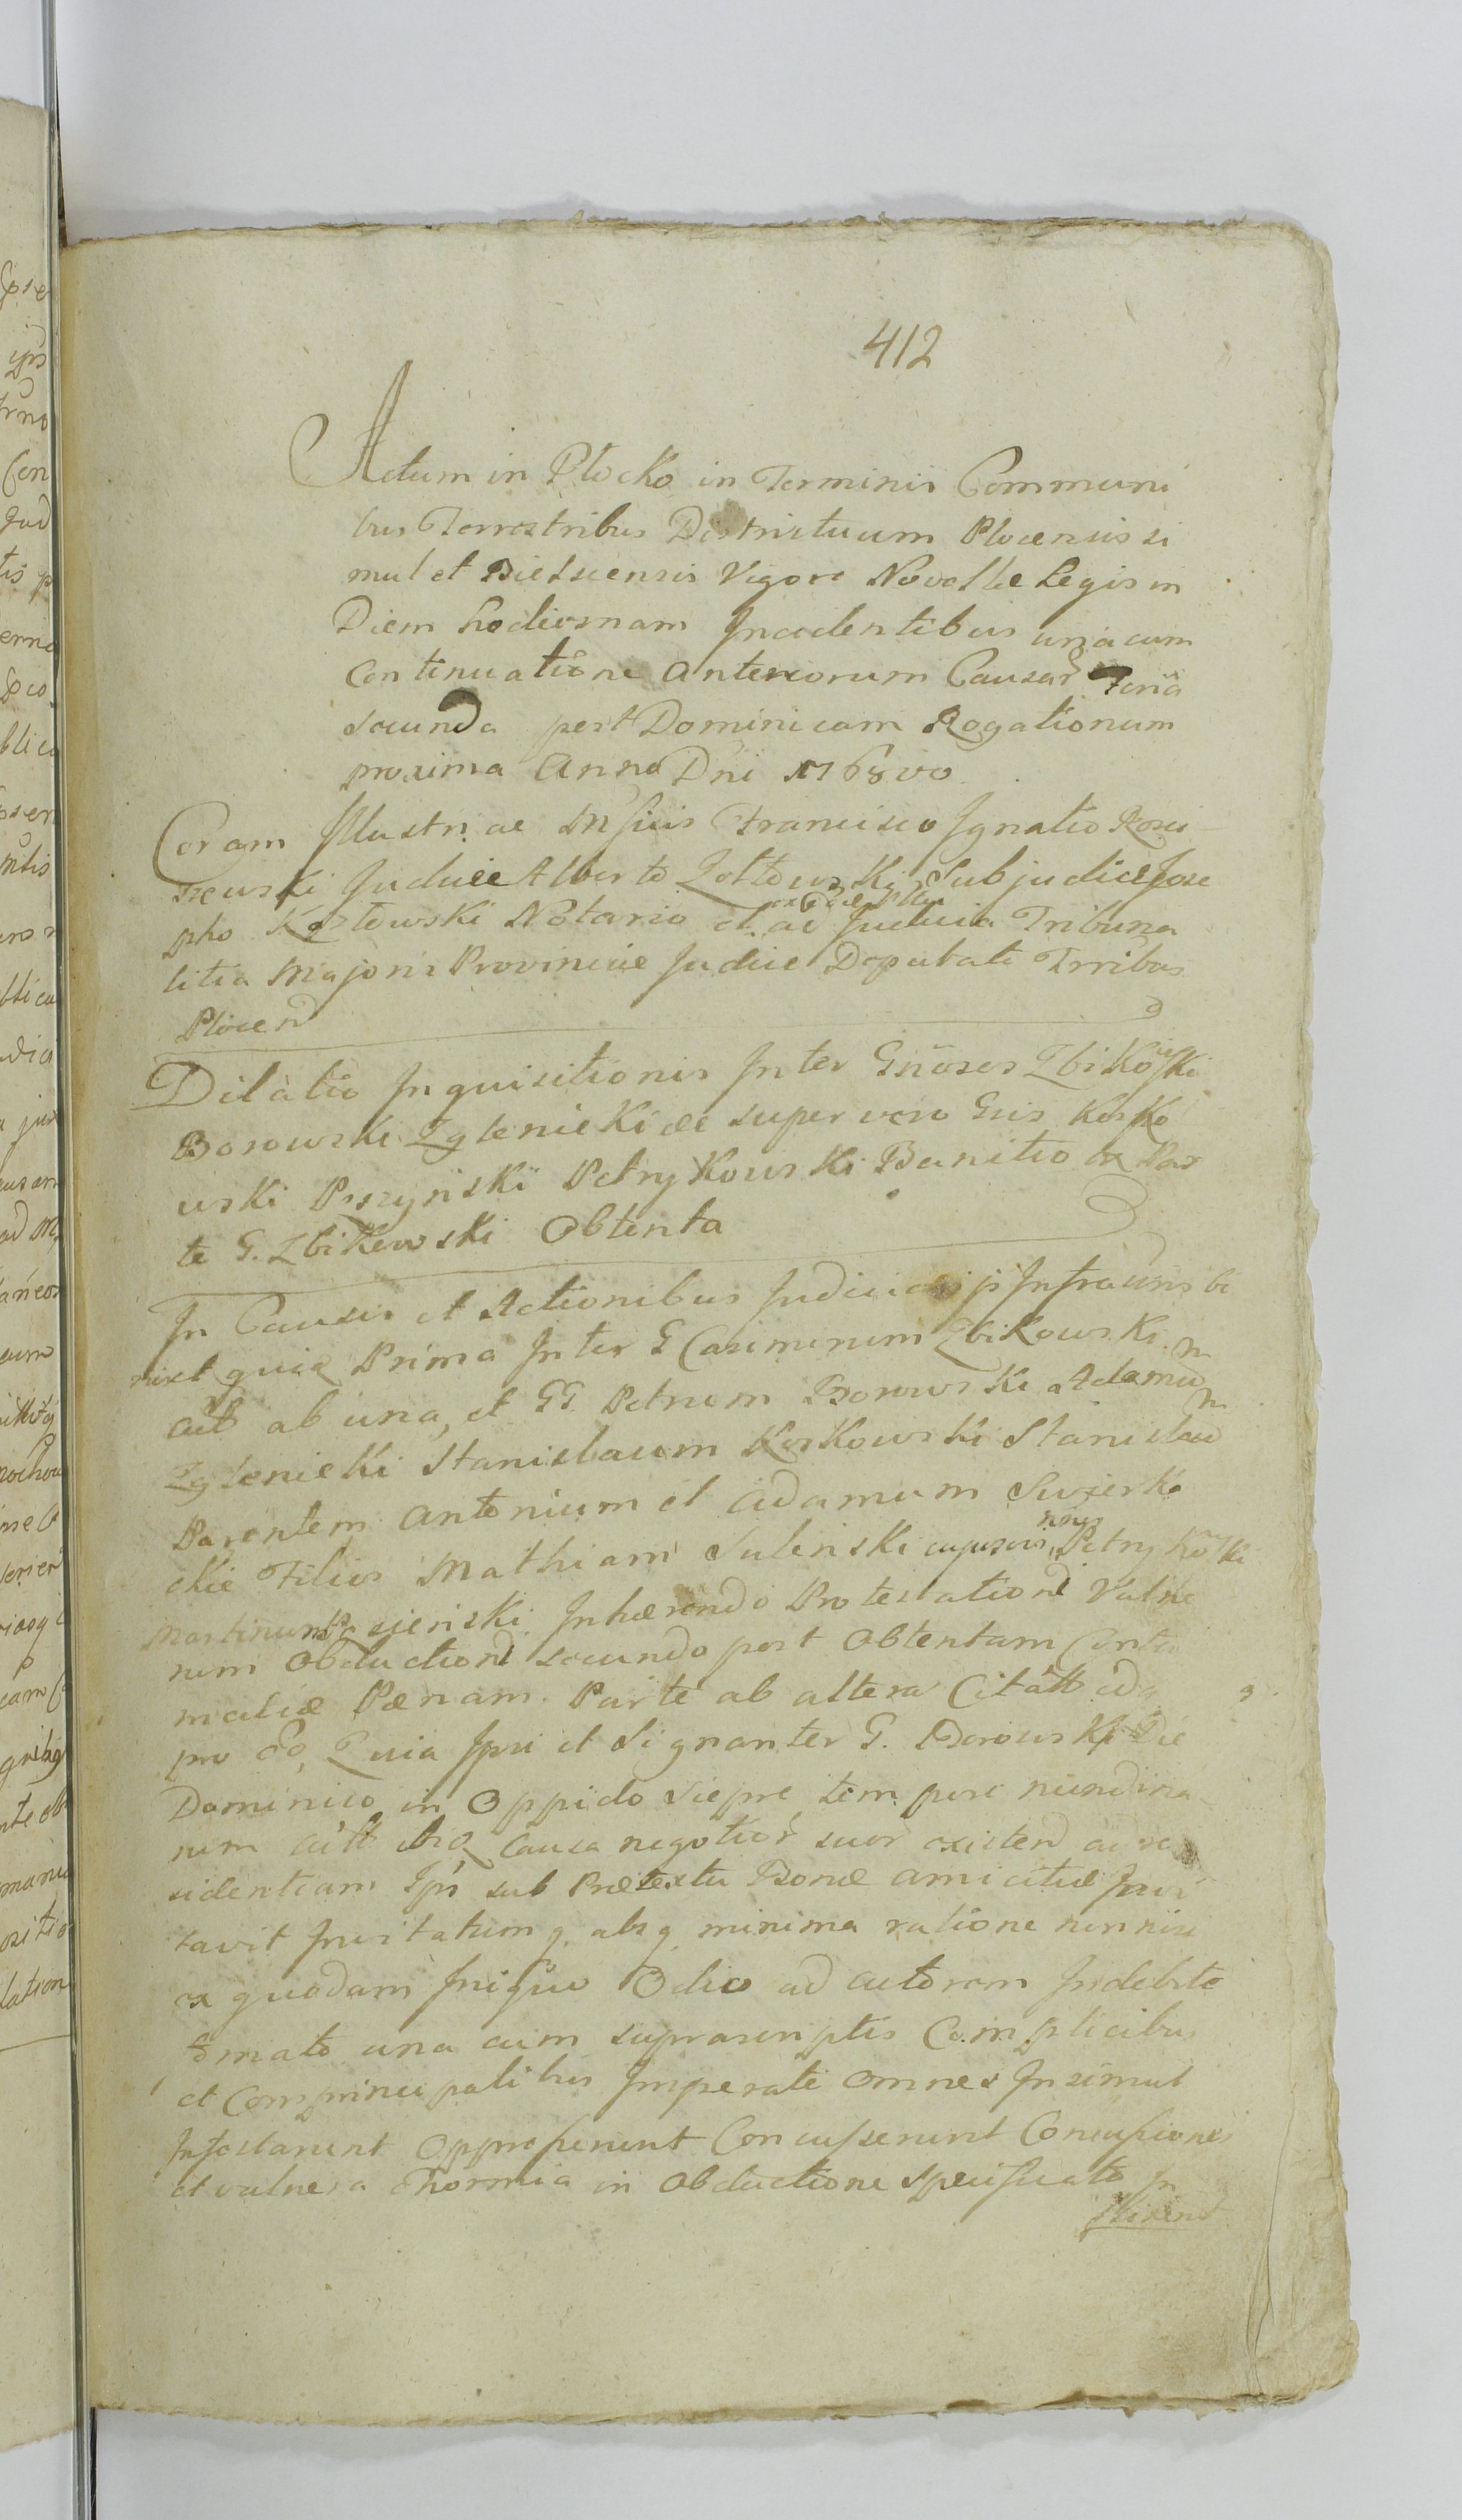 412
Actum in Plocko in Terminis Communi
bus Terrestribus Districtuum Plocensis si
mul et Bielscensis Vigore Novellae Legis in
Diem hodiernam Incidentibus una cum
Continuatione anteriorum Causar Feria
secunda post Dominicam Rogationum
proxima Anno Dni 1768vo
Coram Illustr. ac Mfficis Francisco Ignatio Rosci
szewski Judice Alberto Zottowski Subjudice Jose
pho Kozłowski Notario et ad Judicia Tribuna
litia Majoris Provinciae Judice Deputato Trribus
Plocen
Dilatio Inquisitionis Inter Gnosos Zbikowski
Borowski Zglenicki &c super vero Gsis Kosko
wski Pszzyński Petrykowski Banitio ex Par
te G. Zbikowski Obtenta
In Causis et Actionibus Judicia Infra
quiq Prima Inter G Casimirum Zbikowski
act ab una, et GG. Petrum Borowski Adamum
Zglenicki Stanislaum Koskowski Stanislaum
Parentem Antonium et Adamum Swiersko
ckie Filios Mathiam Sulinski cujusvis nois Petrykowski
Martinum Inhaerendo Protestationi Vulne
rum Obductioni secundo post Obtentam Contu
maciae Paenam. Parte ab altera Citatt
pro eo, Quia Ipsi et Signanter G. Borowski Die
Dominico in Oppido Sieprc tempore nundina
rum causa negotior suor existen ad re
sidentiam Ipsi sub Praetextu Bonae amicitiae Invi
tavit Invitatumq absq minima ratione non nisi
ex quodam Iniquo Odio ad actorem Indebite
una cum suprascriptis Complicibus
et Comprincipalibus Imperati omnes Insimul
Infestarunt Oppresserunt Concusserunt Concussiones
et vulnera in Obductione specificato In